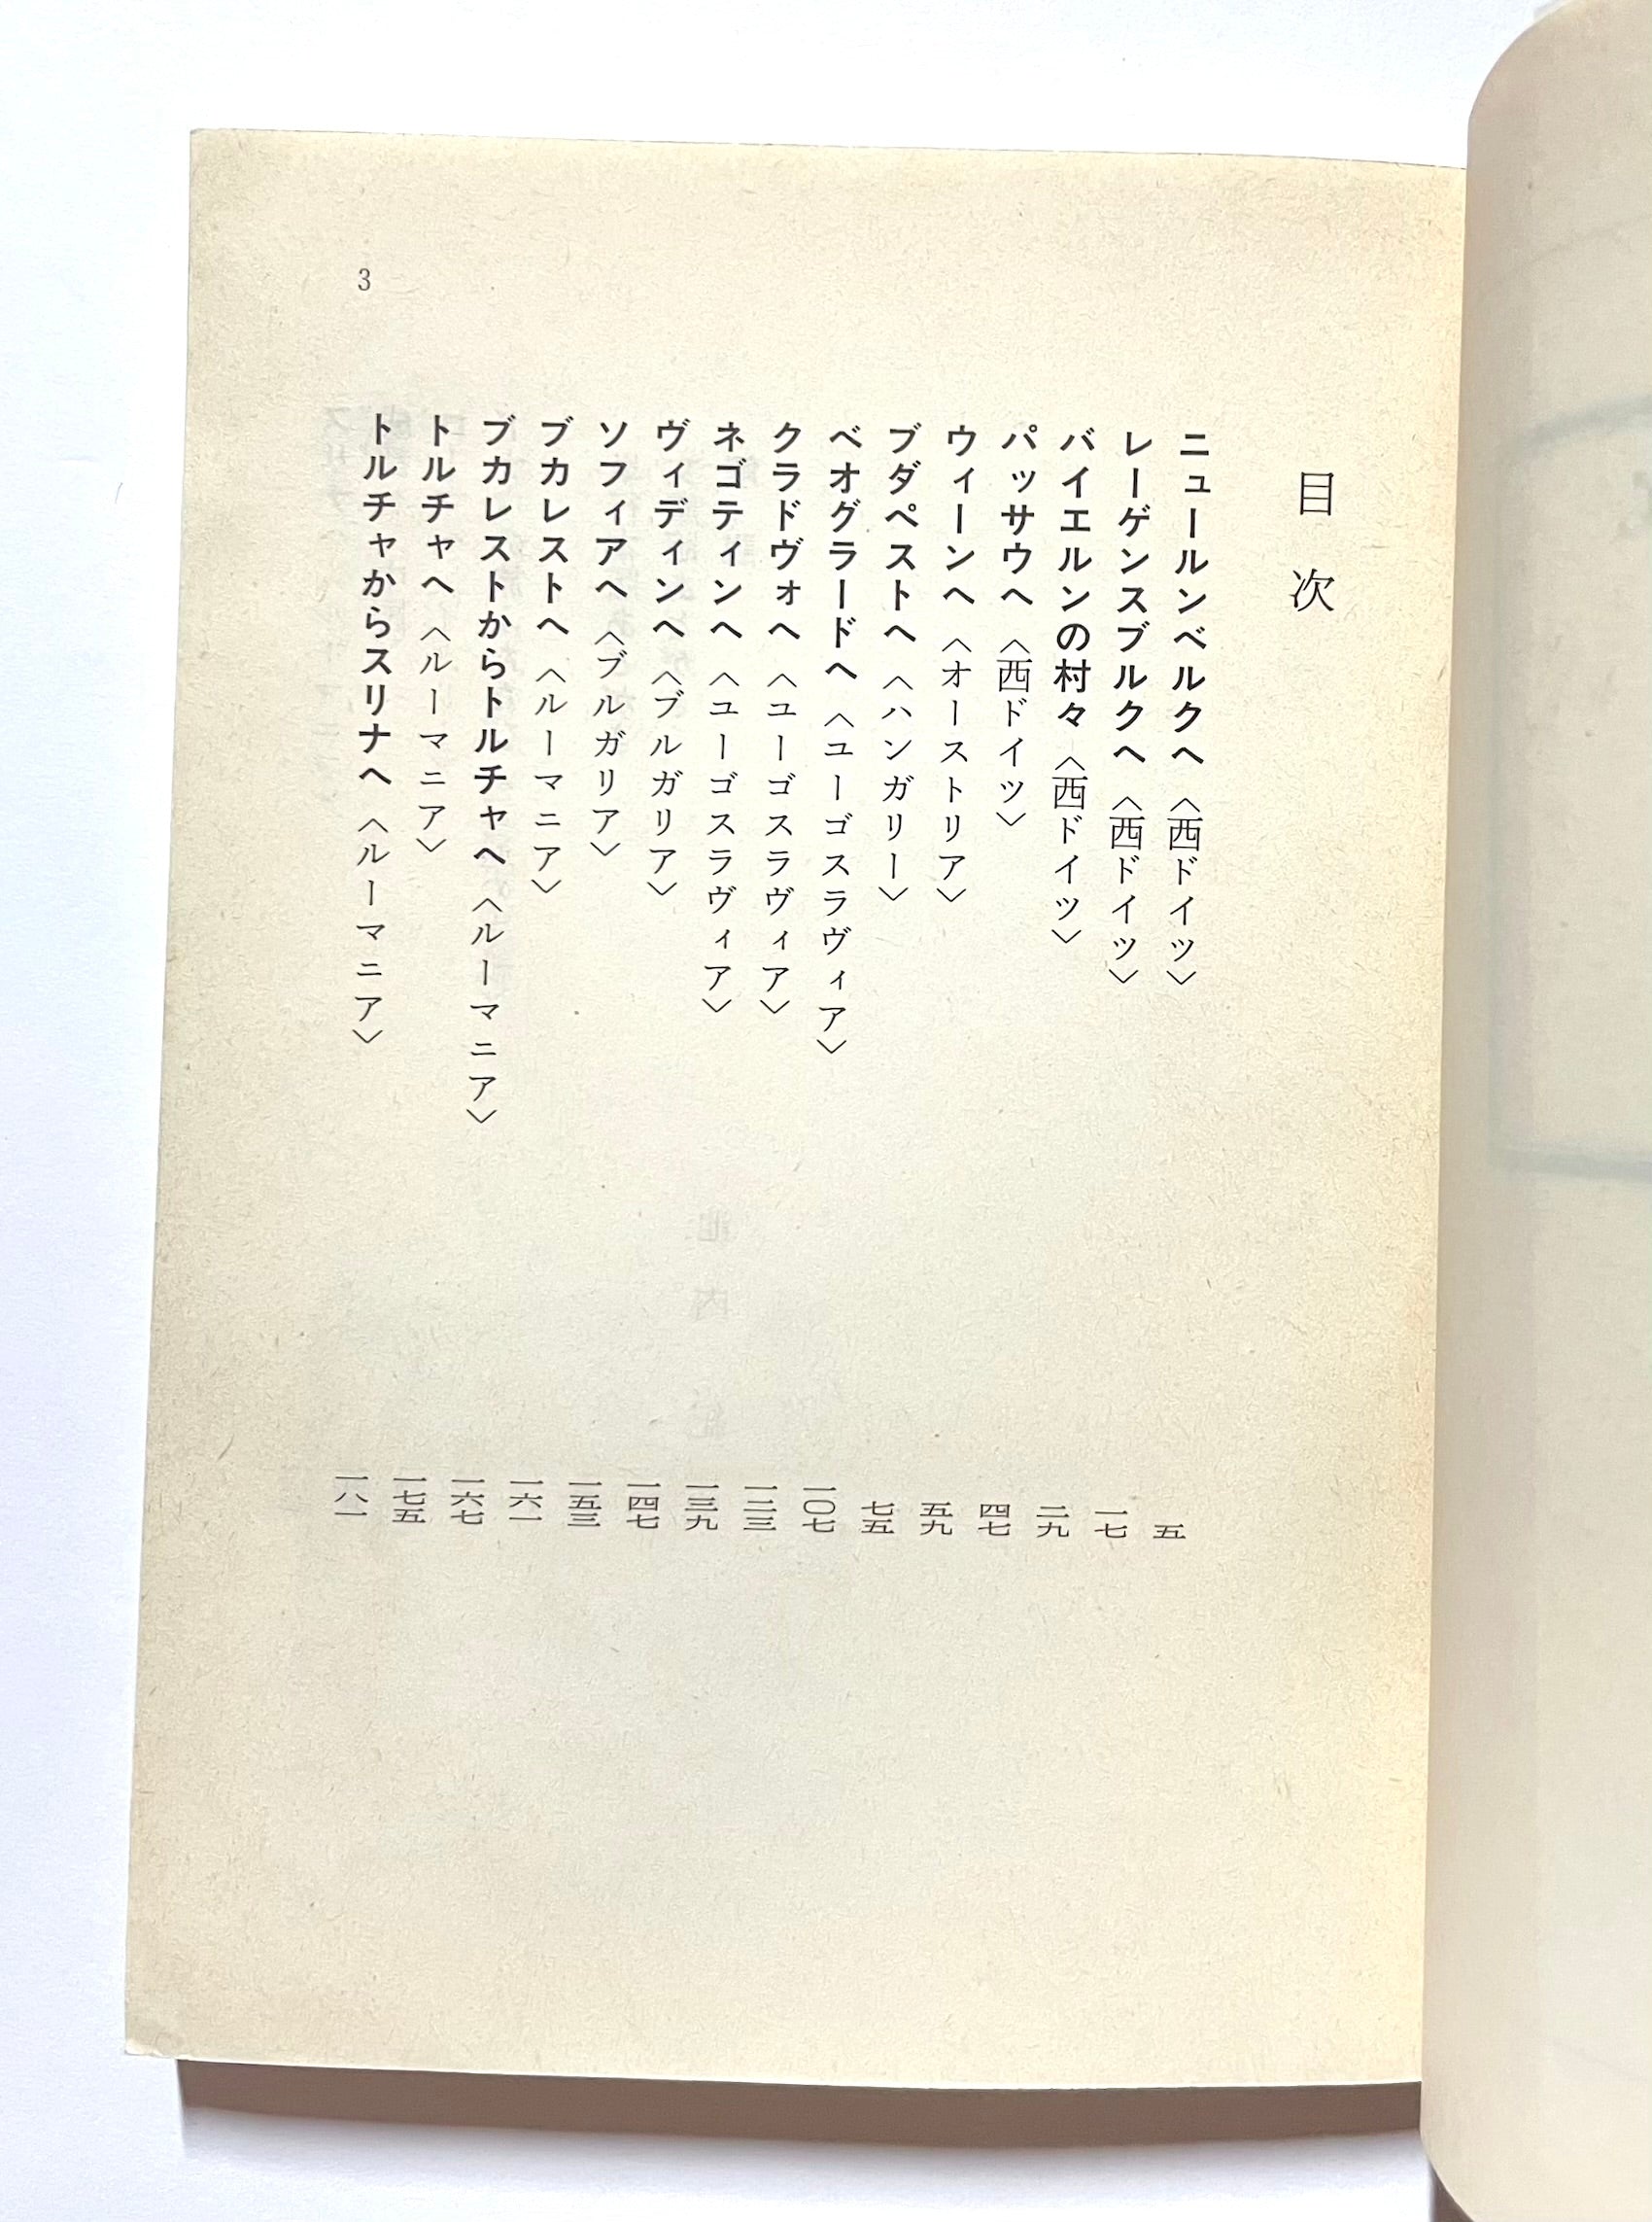 目次
ニュールンベルクへ〈西ドイツ〉 五
レーゲンスブルクへ〈西ドイツ〉 一七
バイエルンの村々〈西ドイツ〉 二九
パッサウへ〈西ドイツ〉 四七
ウィーンへ〈オーストリア〉 五九
ブダペストへ〈ハンガリー〉 七五
ベオグラードへ〈ユーゴスラヴィア〉 一〇七
クラドヴォへ〈ユーゴスラヴィア〉 一二三
ネゴティンへ〈ユーゴスラヴィア〉 一三九
ヴィディンへ〈ブルガリア〉 一四七
ソフィアへ〈ブルガリア〉 一五三
ブカレストへ〈ルーマニア〉 一六一
ブカレストからトルチャへ〈ルーマニア〉 一六七
トルチャへ〈ルーマニア〉 一七五
トルチャからスリナへ〈ルーマニア〉 一八一
3